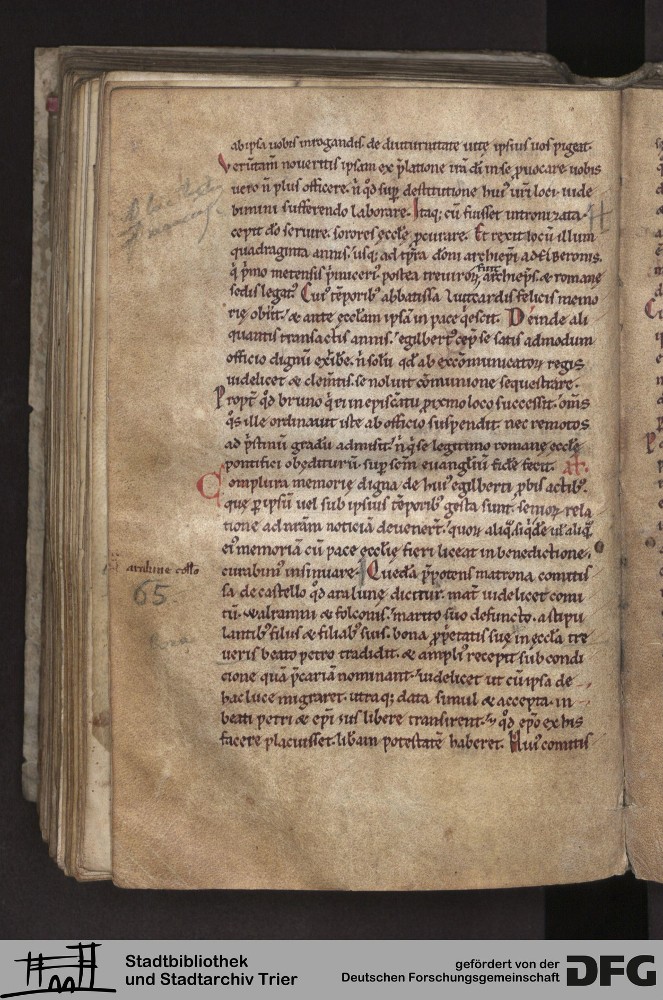 ab ipsa uobis inrogandis. de diuturnitate uite ipsius uos pigeat.
Verūtam̄ noueritis ipsam ex p̄latione irā di in se ꝓuocare. uobis
uero n̄ plus officere. n̄ qd̄ sup destitutione hui' uiri loci. uide
bimini sufferendo laborare. Itaq; cū fuisset intronizata.
cepit dō seruire. sorores eccłę ꝓcurare. Et rexit locū illum
quadraginta annis. usq; ad tp̄ra domni archiep̄i
q' p̄mo metensis p̄micerı'. postea treuiroꝝ fuit archiep̄s. & romanę
sedis legat'. Cui' tēporib' abbatissa luttcardis felicis memo
rię obiit. & ante eccłam ipsā in pace q'escit. Deinde ali
quantis transactis annis. egilbert' cep̄ se satis admodum
officio dignū exhib̄e. n̄ solū qd̄ ab excōmunicatoꝝ regis
uidelicet & clem̄tis. se noluit cōmunione sequestrare.
Propt' qd̄ bruno q' ei in episcatu ꝓximo loco successit. om̄s
q°s ille ordinauit iste ab officio suspendit. nec remotos
ad p'stinū gradū admisit. n̄ q' se legitimo romanę eccłę
pontifici obęditurū. sup sc̄m euangłiū fidē fecit.
Complura memorię digna de hui' egilberti ꝓbis actib'.
quę p ipsū uel sub ipsius tēporib' gesta sunt. semoꝝ rela
tione ad nr̄am noticiā deuener̄t. quoꝝ aliq. siq'de ul' aliq.
ei' memoriā cū pace ecclię fieri liceat in benedictione.
curabim' insinuare. Quedā p̄potens matrona comitis
sa de castello qd̄ aralune dicitur. mat' uidelicet comi
tū. walrammi & folconis. marito suo defuncto. astipu
lantib' filiis & filiab' suis. bona ꝓp'etatis suę in eccła tre
ueris beato petro tradidit. & ampli' recepit sub condi
cione quā p̄cariā nominant. uidelicet ut cū ipsa de
hac luce migraret. utraq; data simul & accepta. in
beati petri & ep̄i ius libere transirent. & qd̄ ep̄o ex his
facere placuisset. libam potestatē haberet. Hui' comitis
aralune
65.
Stadtbibliothek
und Stadtarchiv Trier
gefördert von der
Deutschen Forschungsgemeinschaft
DFG